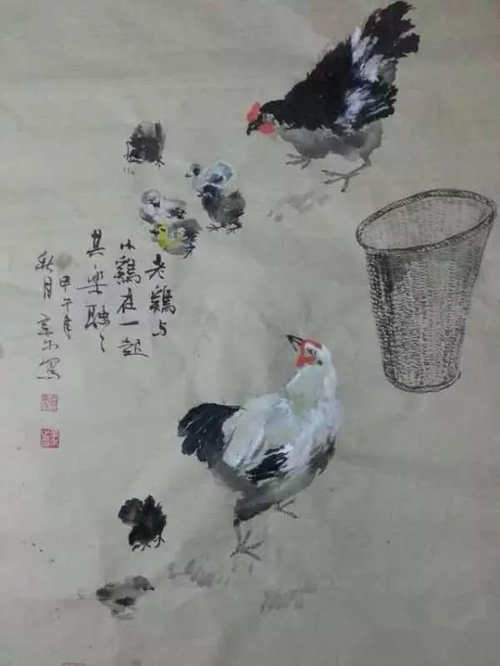 老鷄与
小鷄在一起
其樂融々
甲午年
秋月 寫